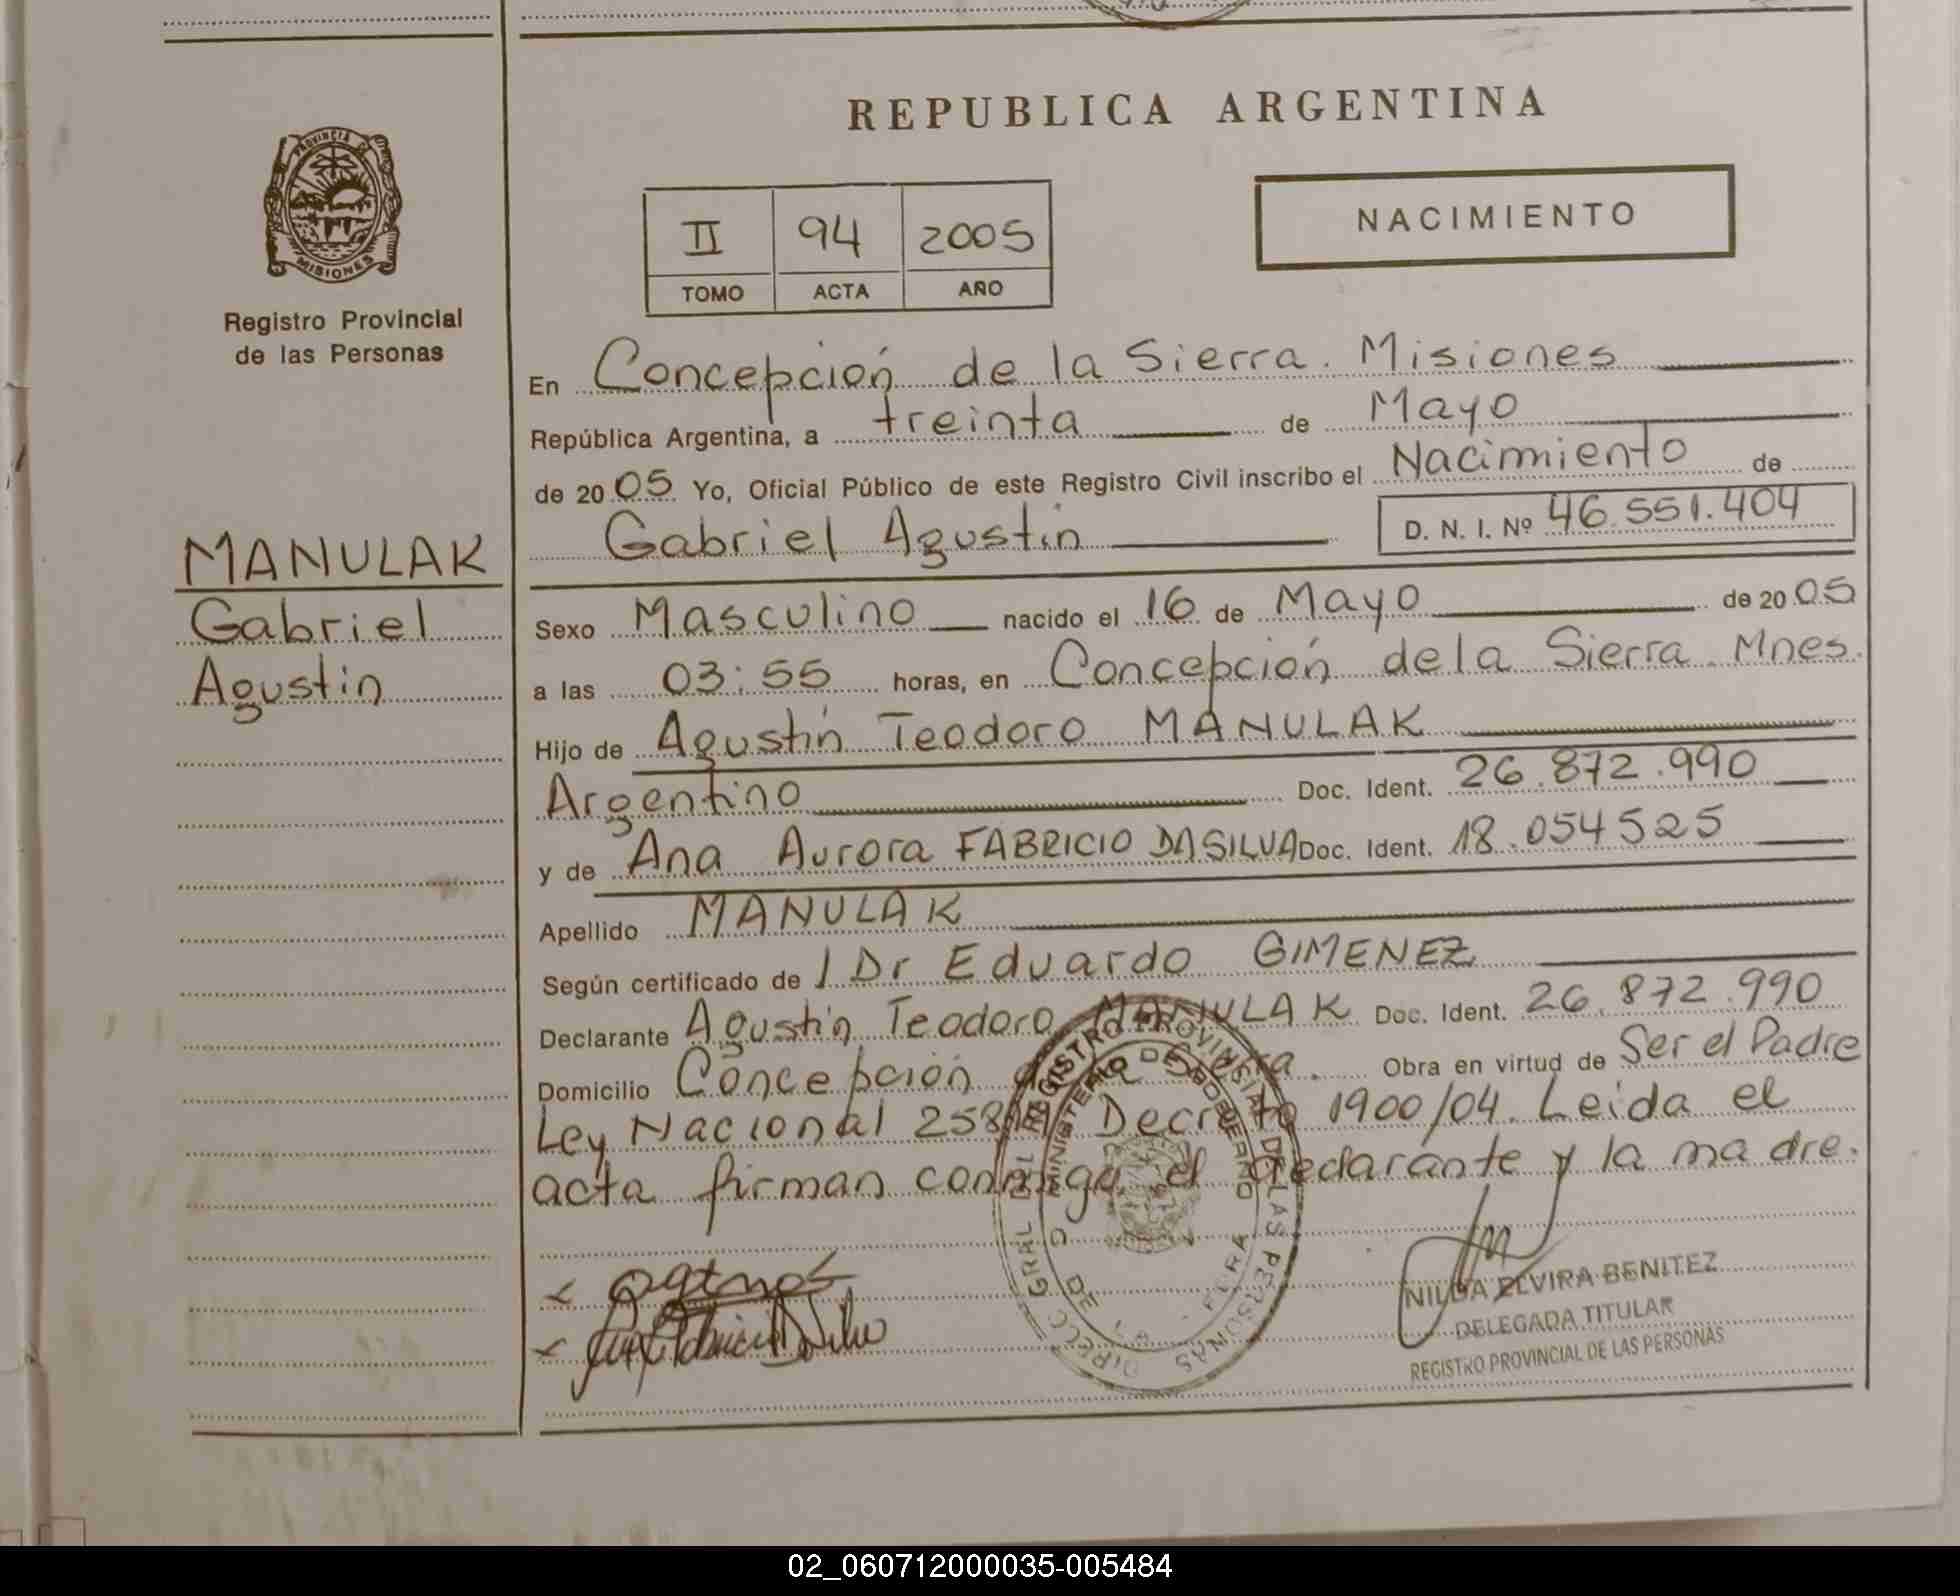 REPUBLICA ARGENTINA
PROVINCIA DE
MISIONES
Registro Provincial
de las Personas
II 94 2005
TOMO ACTA AÑO
NACIMIENTO
En Concepción de la Sierra. Misiones
República Argentina, a treinta de Mayo
de 2005 Yo, Oficial Público de este Registro Civil inscribo el Nacimiento de
Gabriel Agustín D. N. I. Nº 46.551.404
MANULAK
Gabriel
Agustín
Sexo Masculino nacido el 16 de Mayo de 2005
a las 03:55 horas, en Concepción de la Sierra. Mnes.
Hijo de Agustín Teodoro MANULAK
Argentino Doc. Ident. 26.872.990
y de Ana Aurora FABRICIO DASILVA Doc. Ident. 18.054525
Apellido MANULAK
Según certificado de / Dr Eduardo GIMENEZ
Declarante Agustín Teodoro MANULAK Doc. Ident. 26.872.990
Domicilio Concepción de la Sierra. Obra en virtud de Ser el Padre
Ley Nacional Decreto 1900/04. Leida el
acta firman conmigo, el declarante y la madre.
DIRECC GRAL DEL REGISTRO PROVINCIAL DE LAS PERSONAS
MINISTERIO DE GOBIERNO
NILDA ELVIRA BENITEZ
DELEGADA TITULAR
REGISTRO PROVINCIAL DE LAS PERSONAS
02_060712000035-005484